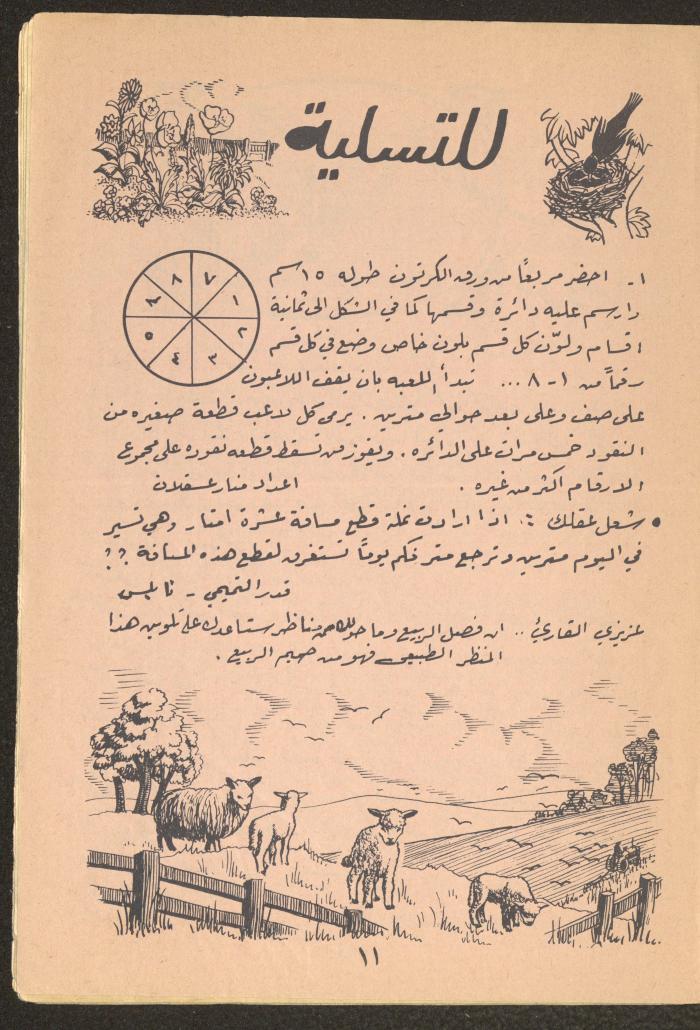 للتسلية
١- احضر مربعاً من ورق الكرتون طوله ١٥ سم
وارسم عليه دائرة وقسمها كما في الشكل الى ثمانية
اقسام ولوّن كل قسم بلون خاص وضع في كل قسم
رقماً من ١-٨ ... تبدأ اللعبه بان يقف اللاعبون
على صف وعلى بعد حوالي مترين . يرمي كل لاعب قطعة صغيره من
النقود خمس مرات على الدائره . ويفوز من تسقط قطعه نقوده على مجموع
الارقام اكثر من غيره .
اعداد منار عسقلان
• شغل عقلك :. اذا ارادت نملة قطع مسافة عشرة امتار وهي تسير
في اليوم مترين وترجع متر فكم يوماً تستغرق لقطع هذه المسافة ؟؟
قدر التميمي - نابلس
عزيزي القارئ .. ان فصل الربيع وما حولك من مناظر ستساعدك على تلوين هذا
المنظر الطبيعي فهو من صميم الربيع .
٧
٨
١
٢
٣
٤
٥
٨
١١